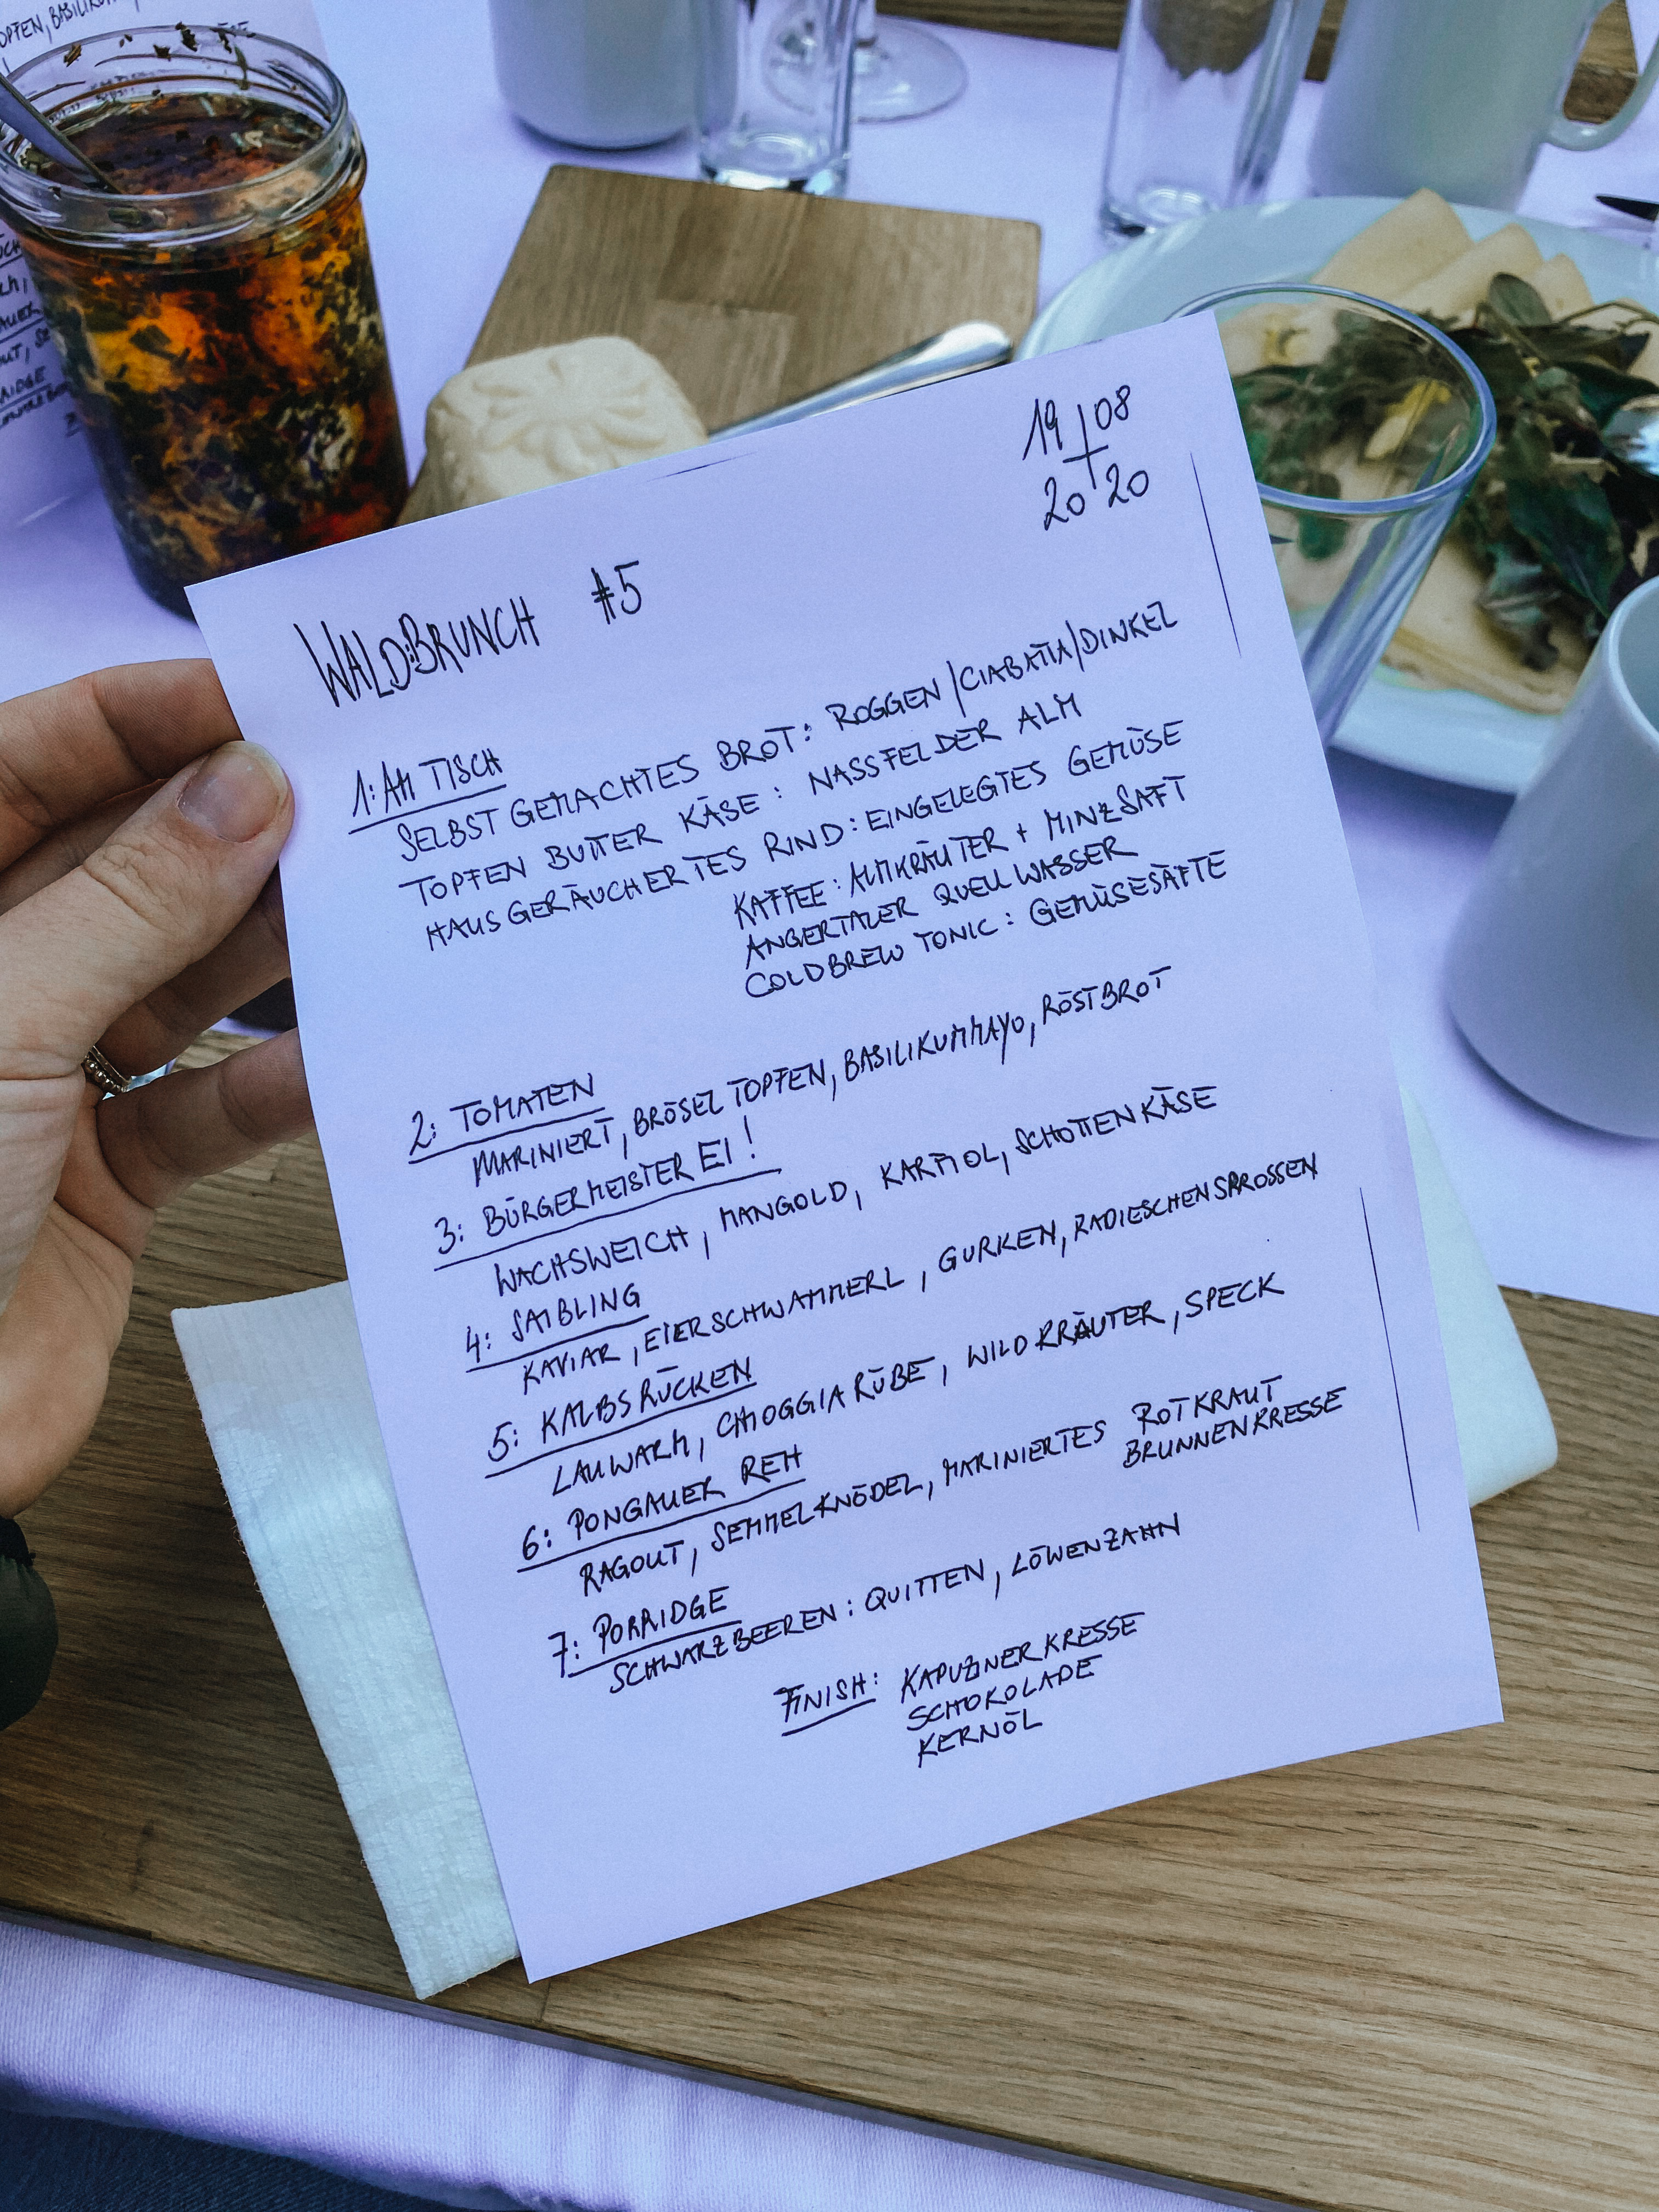 19 08
20 20
WALD:BRUNCH #5
1: AM TISCH
SELBST GEMACHTES BROT: ROGGEN/CIABATTA/DINKEL
TOPFEN BUTTER KÄSE: NASSFELDER ALM
HAUSGERÄUCHERTES RIND: EINGELEGTES GEMÜSE
KAFFEE: ALMKRÄUTER + MINZSAFT
ANGERTALER QUELLWASSER
COLDBREW TONIC: GEMÜSESÄFTE
2: TOMATEN
MARINIERT, BRÖSELTOPFEN, BASILIKUMMAYO, RÖSTBROT
3: BÜRGERMEISTER EI!
WACHSWEICH, MANGOLD, KARFIOL, SCHOTTENKÄSE
4: SAIBLING
KAVIAR, EIERSCHWAMMERL, GURKEN, RADIESCHENSPROSSEN
5: KALBSRÜCKEN
LAUWARM, CHIOGGIA RÜBE, WILDKRÄUTER, SPECK
6: PONGAUER REH
RAGOUT, SEMMELKNÖDEL, MARINIERTES ROTKRAUT
BRUNNENKRESSE
7: PORRIDGE
SCHWARZBEEREN: QUITTEN, LÖWENZAHN
FINISH: KAPUZINERKRESSE
SCHOKOLADE
KERNÖL